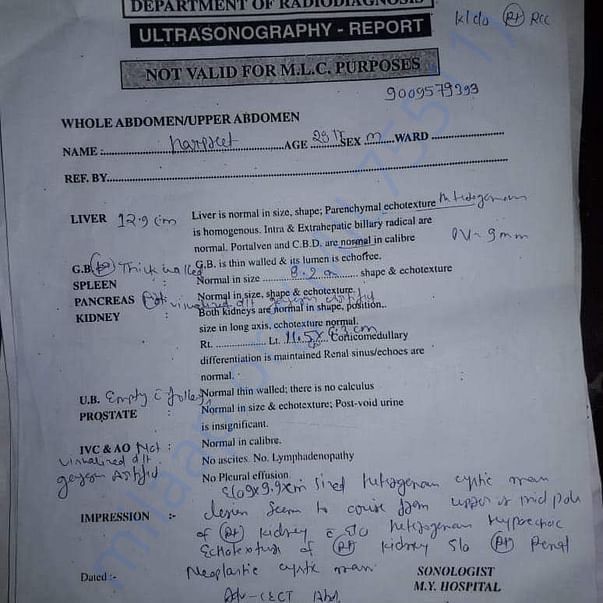 DEPARTMENT OF RADIODIAGNOSIS
ULTRASONOGRAPHY - REPORT
K/c/o (Rt) RCC
NOT VALID FOR M.L.C. PURPOSES
9009579393
WHOLE ABDOMEN/UPPER ABDOMEN
NAME :- Harpreet AGE 25 SEX m WARD
REF. BY
LIVER 12.9 cm Liver is normal in size, shape; Parenchymal echotexture heterogenous
is homogenous. Intra & Extrahepatic billary radical are
normal. Portalven and C.B.D. are normal in calibre PV- 9mm
G.B. Thick walled G.B. is thin walled & its lumen is echofree.
SPLEEN Normal in size 8.2 shape & echotexture
PANCREAS Normal in size, shape & echotexture
Not visualized
KIDNEY Both kidneys are normal in shape, position..
size in long axis, echotexture normal.
Rt. Lt. 11.5x cm Corticomedullary
differentiation is maintained Renal sinus/echoes are
normal.
U.B. Empty Normal thin walled; there is no calculus
PROSTATE : Normal in size & echotexture; Post-void urine
is insignificant.
IVC & AO Not : Normal in calibre.
visualized No ascites. No. Lymphadenopathy
No Pleural effusion
sized heterogenous cystic mass
IMPRESSION :- lesion seem to upper & mid pole
of (Rt) kidney heterogenous hypoechoic
Echotexture of (Rt) kidney s/o (Rt) Renal
Neoplastic cystic mass
SONOLOGIST
Dated :- Adv - CECT Abd. M.Y. HOSPITAL